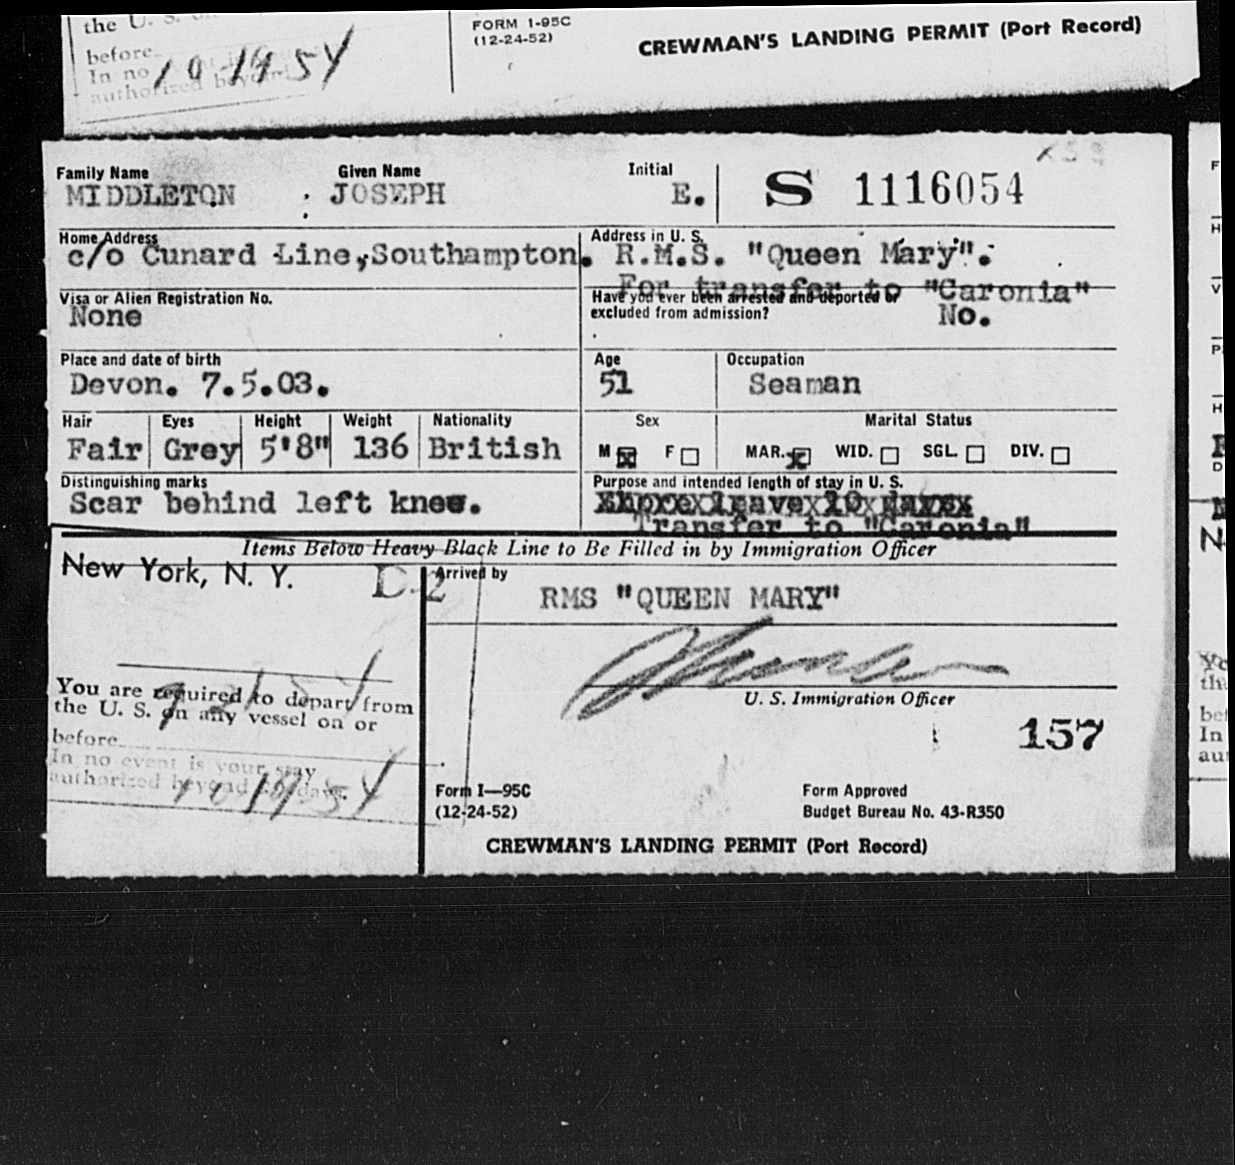 the U. S. on
before
In no
authorized beyond
10-14 54
FORM 1-95C
(12-24-52)
CREWMAN'S LANDING PERMIT (Port Record)
Family Name Given Name Initial
MIDDLETON JOSEPH E. S 1116054
Home Address Address in U. S.
c/o Cunard Line,Southampton. R.M.S. "Queen Mary".
For transfer to "Caronia"
Visa or Alien Registration No. Have you ever been arrested and deported or
excluded from admission?
None No.
Place and date of birth Age Occupation
Devon. 7.5.03. 51 Seaman
Hair Eyes Height Weight Nationality Sex Marital Status
Fair Grey 5'8" 136 British M F MAR. WID. SGL. DIV.
Distinguishing marks Purpose and intended length of stay in U. S.
Scar behind left knee. Shore leave 10 days
Transfer to "Caronia"
Items Below Heavy Black Line to Be Filled in by Immigration Officer
New York, N. Y. D-2
Arrived by
RMS "QUEEN MARY"
U. S. Immigration Officer
You are required to depart from
the U. S. on any vessel on or
before
In no event is your stay
authorized beyond days.
10 14-54
157
Form I—95C
(12-24-52)
Form Approved
Budget Bureau No. 43-R350
CREWMAN'S LANDING PERMIT (Port Record)